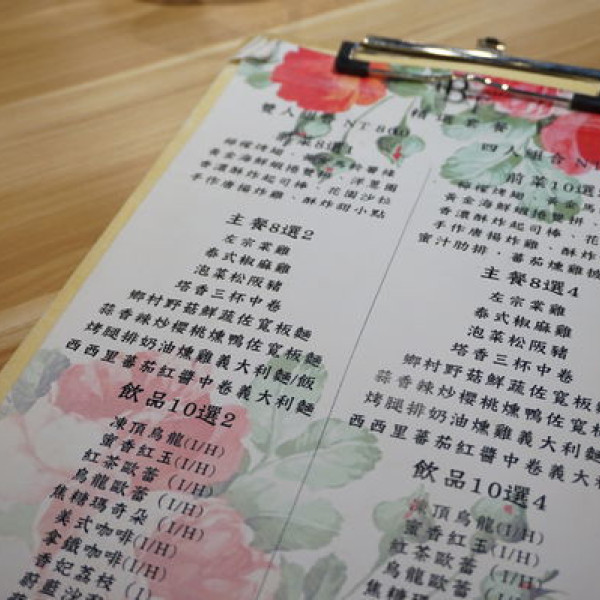 B
精選套餐
雙人組合 NT 8
前菜8選1
檸檬烤翅、
黃金海鮮蝦捲雙拼、洋蔥圈
香濃酥炸起司棒、花園沙拉
手作唐揚炸雞、酥炸甜小點
主餐8選2
左宗棠雞
泰式椒麻雞
泡菜松阪豬
塔香三杯中卷
鄉村野菇鮮蔬佐寬板麵
蒜香辣炒櫻桃燻鴨佐寬板麵
烤腿排奶油燻雞義大利麵/飯
西西里蕃茄紅醬中卷義大利麵
飲品10選2
凍頂烏龍(I/H)
蜜香紅玉(I/H)
紅茶歐蕾(I/H)
烏龍歐蕾(I/H)
焦糖瑪奇朵(I/H)
美式咖啡(I/H)
拿鐵咖啡(I/H)
香妃荔枝(I)
蔚藍沙
四人組合 NT
前菜10選
檸檬烤翅、黃金馬
黃金海鮮蝦捲雙拼、
香濃酥炸起司棒、花
手作唐揚炸雞、酥炸
蜜汁肋排、蕃茄燻雞披
主餐8選4
左宗棠雞
泰式椒麻雞
泡菜松阪豬
塔香三杯中卷
鄉村野菇鮮蔬佐寬板
蒜香辣炒櫻桃燻鴨佐寬
烤腿排奶油燻雞義大利麵
西西里蕃茄紅醬中卷義大
飲品10選4
凍頂烏龍(I/H)
蜜香紅玉(I/H)
紅茶歐蕾(I/H)
烏龍歐蕾(I/H)
焦糖瑪